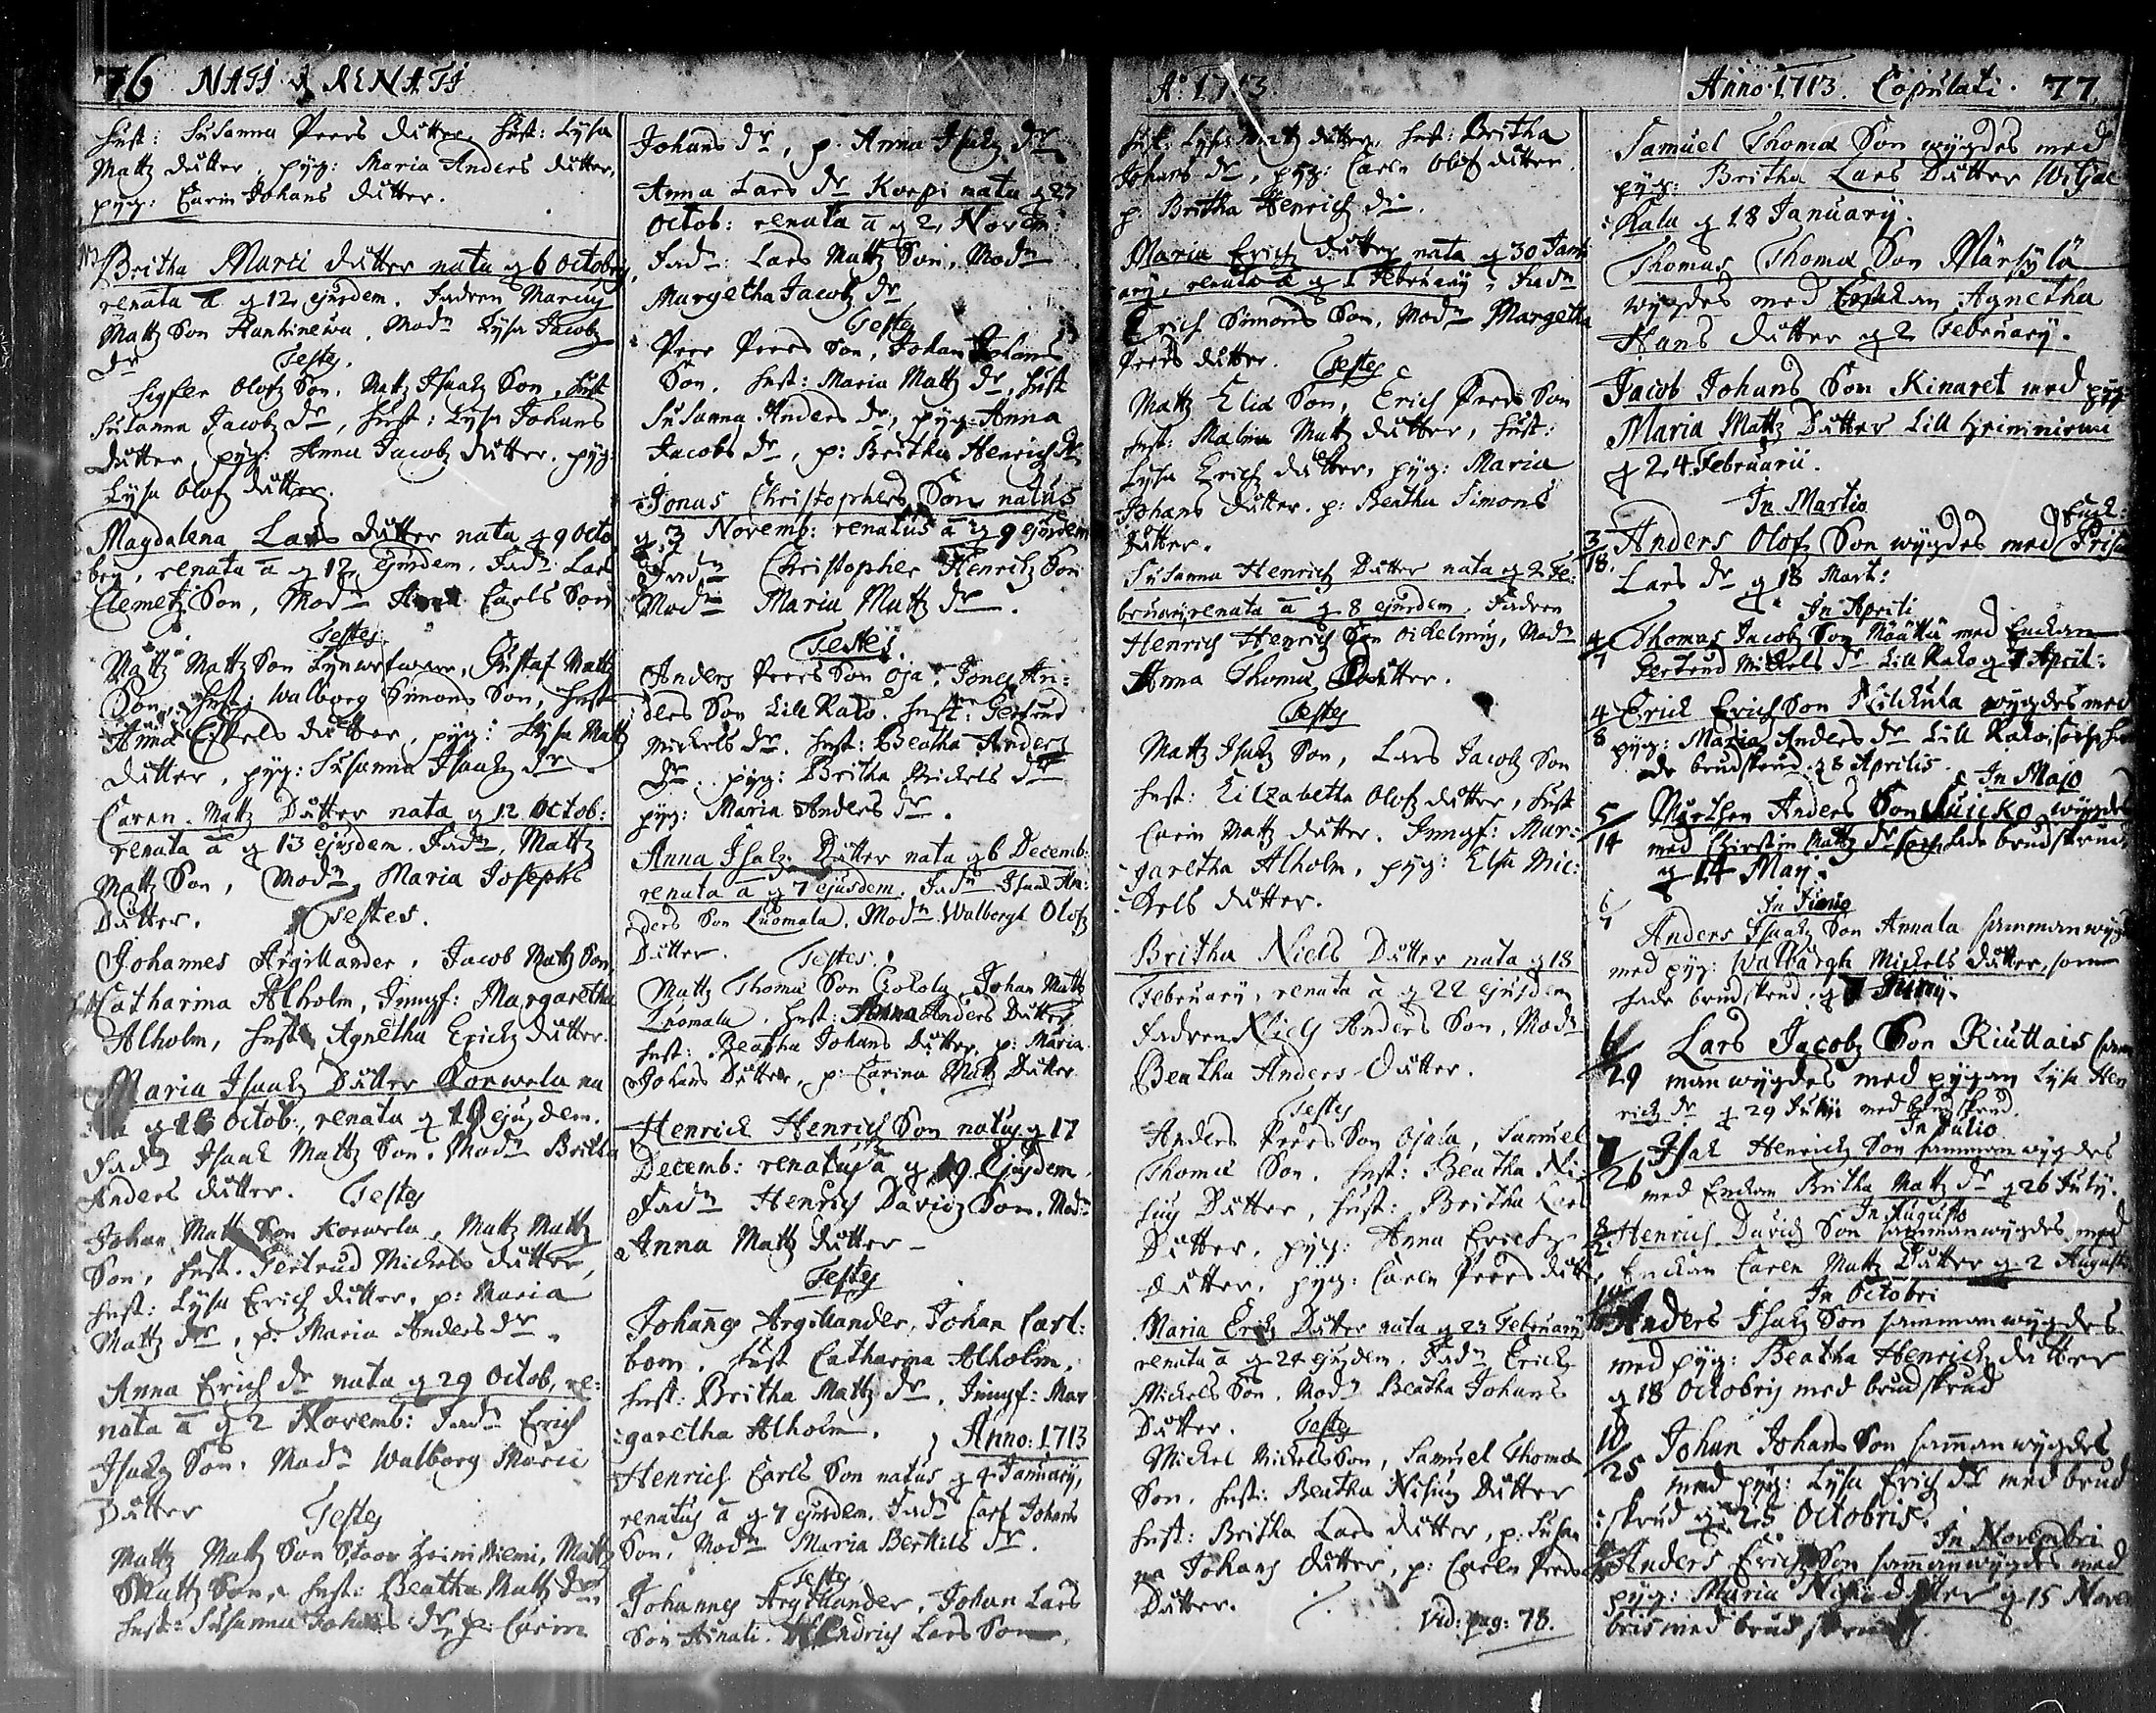 76 NATI & RENATI
hust: Susanna Peers dutter, hust: Lysa
Mattz dutter, pyg: Maria Anders dutter,
pyg: Carin Johans dutter.
Britha Marci dutter nata d 6 octobris,
renata ā d 12 ejusdem. Fadren Marcus
Mattz Son Hanhinewa. Modn Lysa Jacobz
dr Testes.
Sigfer Olofz Son, Mattz Isaakz Son, hust
Susanna Jacobz dr, hust: Lysa Johans
dutter, pyg: Anna Jacobz dutter. pyg:
Lysa Olofz dutter.
Magdalena Lars dutter nata d 9 octo
bris, renata ā d 12 ejusdem. Fadn: Lars
Clemetz Son, Modn Anna Carls Son
Testes
Mattz Mattz Son, Gustaf Mattz
Son, hust: Walborg Simons Son, hust
Anna Eskels dutter, pyg: Lysa Mattz
dutter, pyg: Susanna Isaakz dr.
Caren Mattz Dutter nata d 12 Octob:
renata ā d 13 ejusdem. Fadn, Mattz
Mattz Son, Modn, Maria Josephs
Dutter. Testes.
Johannes Argillander, Jacob Mattz Son,
hust Catharina Alholm, Jungf: Margaretha
Alholm, hust Agnetha Erickz dutter.
Maria Isaakz Dutter Korwela na
ta d 16 Octob:, renata d 19 ejusdem.
Fadn Isaak Mattz Son. Modn Britha
Anders dutter. Testes
Johan Mattz Son Korwela, Mattz Mattz
Son, hust. Gertrud Mickels dutter,
hust: Lysa Erich dutter, p: Maria
Mattz dr, p: Maria Anders dr.
Anna Erich dr nata d 29 Octob, re:
nata ā d 2 Novemb: Fadn Erich
Isaakz Son. Modn Walborg Marci
Dutter Testes
Mattz Mattz Son Stoor Heininiemi, Mattz
Mattz Son, hust: Beatha Mattz dr,
hust: Susanna Johans dr, p: Carin
Johans dr, p. Anna Isakz dr
Anna Lars dr Korpi nata d 27
Octob: renata ā d 2 Novem:
Fadn: Lars Mattz Son, Modn
Margetha Jacobz dr
Testes
Peer Peers Son, Johan Johans
Son. hust: Maria Mattz dr, hust
Susanna Anders dr, pyg: Anna
Jacobs dr, p: Britha Henrich dr
Jonas Christophers Son natus
d 3 Novemb: renatus ā d 9 ejusdem
Fadn Christopher Henrichz Son
Modn Maria Mattz dr.
Testes.
Anders Peers Son Oja, Jones An:
ders Son Lill Kalo. hust: Gertrud
Mickels dr. hust: Beatha Anders
Dr. pyg: Britha Mickels dr
pyg: Maria Anders dr.
Anna Isakz Dutter nata d 6 Decemb:
renata ā d 7 ejusdem. Fadn Isaak An:
ders Son Luomala. Modn Walbergh Olofz
Dutter. Testes.
Mattz Thomæ Son, Johan Mattz
Luomala. hust: Anna Anders Dutter
hust: Beatha Johans Dutter. p: Maria
Johans Dutter, p: Carina Mattz Dutter
Henrick Henrich Son natus d 17
Decemb: renatus ā d 19 Ejusdem.
Fadn Henrich Davidz Son. Modn
Anna Mattz dutter
Testes
Johannes Argillander, Johan Carl:
bom. hust Catharina Alholm.
hust: Britha Mattz dr, Jungf: Mar
garetha Alholm. Anno: 1713
Henrich Carls Son natus d 4 January,
renatus ā d 7 ejusdem. Fadn Carl Johans
Son. Modn Maria Bertils dr.
Testes
Johannes Argillander, Johan Lars
Son, Hendrich Lars Son
Ao: 1713.
hust: Lysa Mattz dutter, hust: Britha
Johans dr, pyg: Caren Olof dutter.
p. Britha Henrich dr.
Maria Erich dutter nata d 30 Janu
ary, renata ā d 1 February, Fadn
Erich Simons Son, Modn Margetha
Peers dutter. Testes
Mattz Eliæ Son, Erich Peers Son
hust: Malin Mattz dutter, hust:
Lysa Erich dutter, pyg: Maria
Johans dutter. p: Beatha Simons
dutter.
Susanna Henrich Dutter nata d 2 Fe:
bruary renata ā d 8 ejusdem. Fadren
Henrich Henrich Son, Modn
Anna Thomæ Dutter.
Testes
Mattz Isakz Son, Lars Jacobz Son
hust: Elizabetha Olofz dutter, hust
Carin Mattz dutter. Jungf: Mar:
garetha Alholm, pyg: Elsa Mic:
kels dutter.
Britha Niels Dutter nata d 18
February, renata ā d 22 ejusdem
Fadren Niels Anders Son, Modn
Beatha Anders Dutter.
Testes
Anders Peers Son Ojala, Samuel
Thomæ Son. hust: Beatha Ni-
lius Dutter, hust: Britha Lars
Dutter, pyg: Anna Erichz
dutter, pyg: Caren Peers dutter
Maria Erichz Dutter nata d 23 February
renata ā d 24 ejusdem. Fadn Erick
Mickels Son. Modn Beatha Johans
Dutter. Testes
Mickel Mickels Son, Samuel Thomæ
Son. hust: Beatha Dutter
hust: Britha Lars dutter, p: Susan
na Johans dutter, p: Caren Peers
Dutter.
Vid: pag: 78.
Anno 1713. Copulati. 77
Samuel Thomæ Son wygdes med
pyg: Britha Lars Dutter
Kala d 18 January.
Thomas Thomæ Son Märsylä
wygdes med Enckan Agnetha
Hans dutter d 2 February.
Jacob Johans Son Kinaret med pyg:
Maria Mattz Dutter Lill Heininiemi
d 24 Februarii.
In Martio
3/18. Anders Olofz Son wygdes med Enck: Prisa
Lars dr d 18 Mart:
In Aprili
4/7 Thomas Jacobz Son med Enckan
Gertrud Mickels dr Lill Kalo d 7 April:
4/8 Erick Erich Son wygdes med
pyg: Maria Anders dr Lill Kalo, som ha
de brudskrud d 8 Aprilis.
In Majo
5/14 Morthen Anders Son wygdes
med Chirstin Mattz dr som hade brudskrud
d 14 May.
In Junio
6/7 Anders Isaakz Son Annala sammanwygd
med pyg: Walbårgh Mickels dutter, som
hade brudskrud d 7 Juny.
6/29 Lars Jacobz Son Riuttais sam
manwygdes med pygan Lysa Hen
rich dr d 29 med brudskrud.
In Julio
7/26 Isak Henrichz Son sammanwygdes
med Enckan Britha Mattz dr d 26 July.
In Augusto
8/2 Henrich Davidz Son sammanwygdes med
Enckan Caren Mattz Dutter d 2 Augusti
In Octobri
Anders Isakz Son sammanwygdes
med pyg: Beatha Henrichz dutter
d 18 Octobris med brudskrud
10/25 Johan Johans Son sammanwygdes
med pyg: Lysa Erich dr med brud
skrud d 25 Octobris.
In Novembri
Anders Erich Son sammanwygdes med
pyg: Maria dutter d 15 Novem
bris med brudskrud.